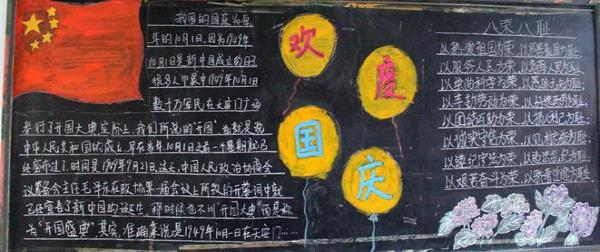 我国的国庆为每
年的10月1日,因为1949年
10月1日是新中国成立的日子
很多人都以为1949年10月1日
数十万军民,在天安门广场
举行了开国大典实际上,我们所说的"开国"也就是说
中华人民共和国的成立,早在当年10月1日之前一个星期就已
经宣布过了。时间是1949年9月21日,这天,中国人民政治协商会
议筹备会主任毛泽东在政协第一届会议上所致的开幕词中就
已经宣告了新中国的诞生,那时候也不叫"开国大典"而是称
为"开国盛典"其实,准确来说是1949年10月一日在天安门……
欢
度
国
庆
八荣八耻
以热爱祖国为荣,以危害祖国为耻
以服务人民为荣,以背离人民为耻
以崇尚科学为荣,以愚昧无知为耻
以辛勤劳动为荣,以好逸恶劳为耻
以团结互助为荣,以损人利己为耻
以诚实守信为荣,以见利忘义为耻
以遵纪守法为荣,以违法乱纪为耻
以艰苦奋斗为荣,以骄奢淫逸为耻